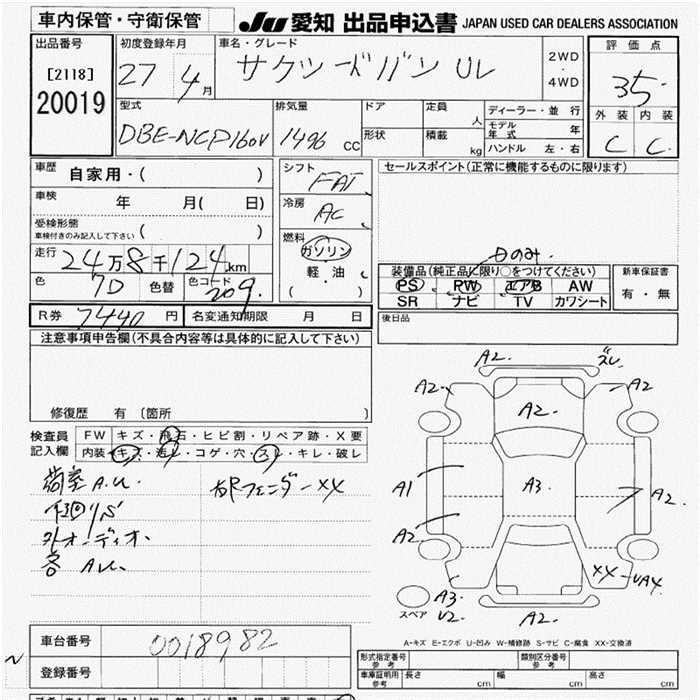 車内保管・守衛保管 JU 愛知 出品申込書 JAPAN USED CAR DEALERS ASSOCIATION
出品番号 初度登録年月 車名・グレード 評価点
[2118] 27 4月 サクシードバン UL 2WD・4WD 35
20019
型式 排気量 ドア 定員 人 ディーラー・並行 外装 内装
DBE-NCP160V 1496 CC 形状 積載 kg モデル年式 年 C C
ハンドル 左・右
車歴 自家用・( ) シフト FAT セールスポイント(正常に機能するものに限ります)
車検 年 月( 日) 冷房 AC
受検形態 ( )
車検付きのみ記入して下さい
走行 24万8千124km 燃料 ガソリン Dのみ.
軽・油 装備品(純正品に限り○をつけてください) 新車保証書
色 7D 色替 色コード 209. ( ) PS PW エアB AW 有・無
SR ナビ TV カワシート
R券 7440 円 名変通知期限 月 日 後日品
注意事項申告欄(不具合内容等は具体的に記入して下さい)
修復歴 有 〔箇所 〕
検査員 FW キズ・飛石・ヒビ割・リペア跡・X要
記入欄 内装 キズ・汚レ・コゲ・穴・スレ・キレ・破レ
荷室 A.U. 右Rフェンダ-XX
下回りS
外オーディオ.
A2. スレ.
A2. A2
A2.
A1 A3 A2.
A2.
XX-UA4
スペア A3 U2 A2.
A-キズ E-エクボ U-凹み W-補修跡 S-サビ C-腐食 XX-交換済
車台番号 0018982
登録番号
形式指定番号 参考 類別区分番号 参考
車庫証明用 参考 長さ cm 幅 cm 高さ cm